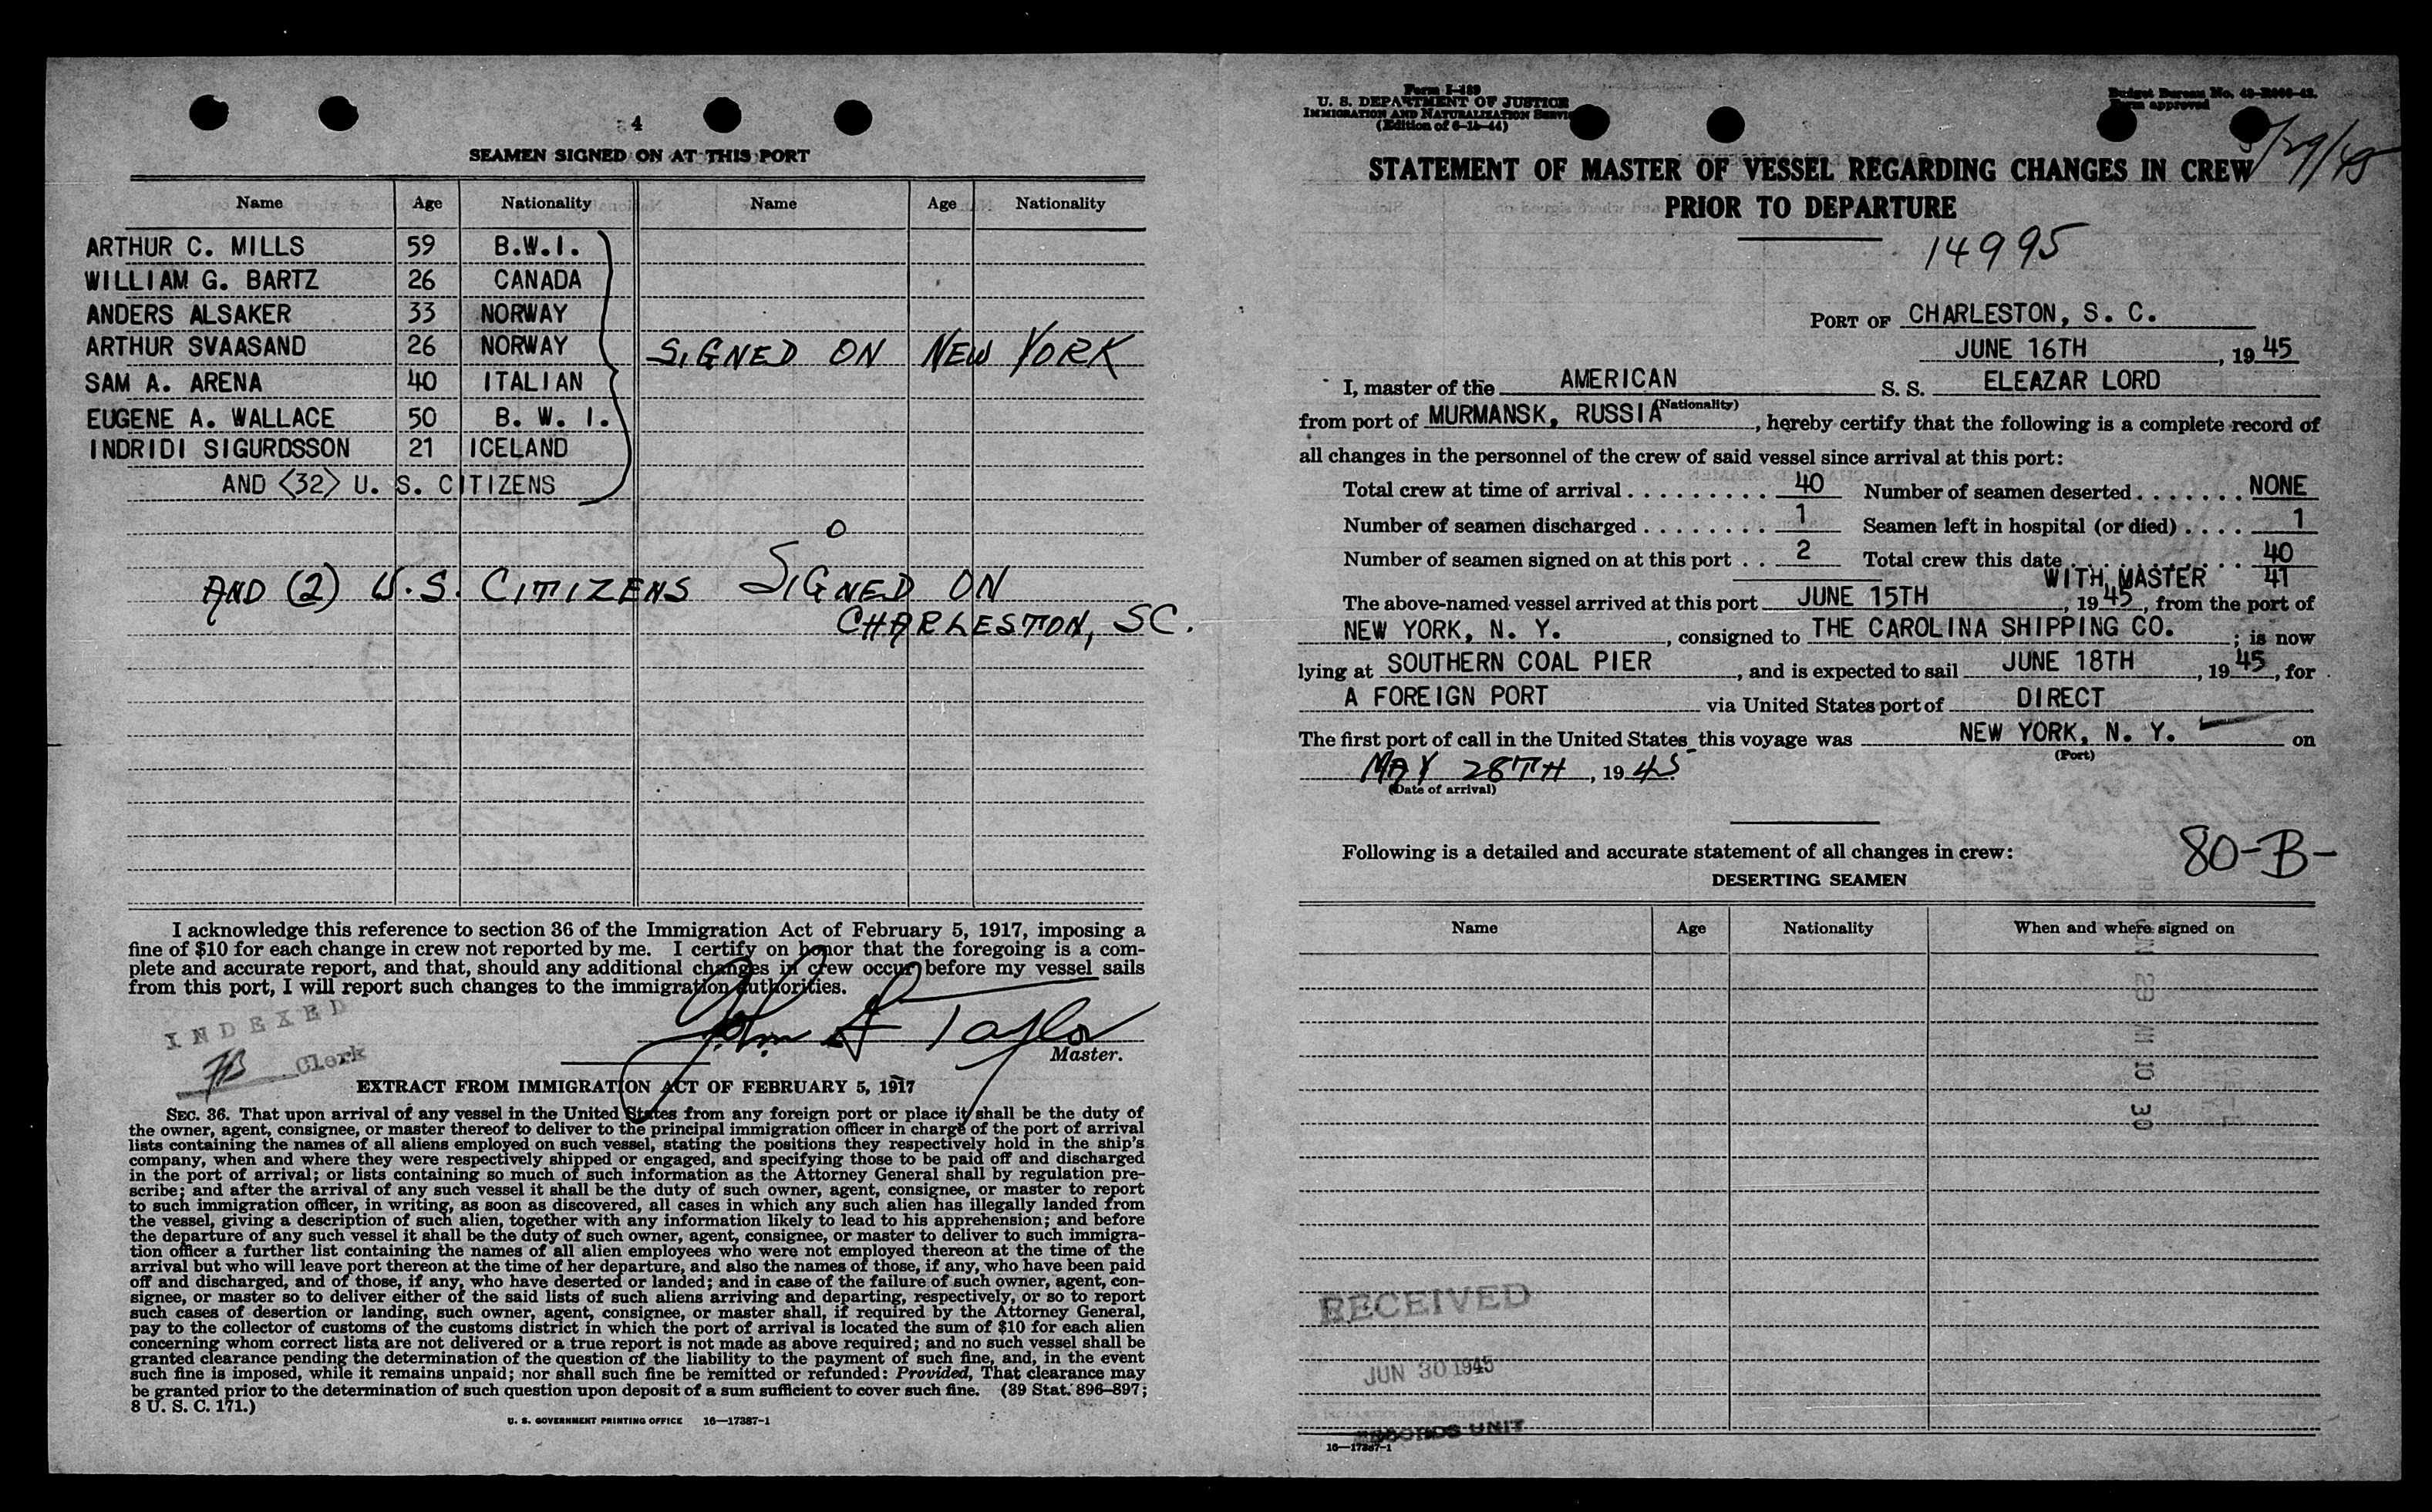 4
SEAMEN SIGNED ON AT THIS PORT
Name Age Nationality Name Age Nationality
ARTHUR C. MILLS 59 B.W.I.
WILLIAM G. BARTZ 26 CANADA
ANDERS ALSAKER 33 NORWAY
ARTHUR SVAASAND 26 NORWAY SIGNED ON NEW YORK
SAM A. ARENA 40 ITALIAN
EUGENE A. WALLACE 50 B. W. I.
INDRIDI SIGURDSSON 21 ICELAND
AND <32> U. S. CITIZENS
AND (2) U.S. CITIZENS SIGNED ON
CHARLESTON, SC.
I acknowledge this reference to section 36 of the Immigration Act of February 5, 1917, imposing a
fine of $10 for each change in crew not reported by me. I certify on honor that the foregoing is a com-
plete and accurate report, and that, should any additional changes in crew occur before my vessel sails
from this port, I will report such changes to the immigration authorities.
INDEXED
Clerk
John A Taylor
Master.
EXTRACT FROM IMMIGRATION ACT OF FEBRUARY 5, 1917
SEC. 36. That upon arrival of any vessel in the United States from any foreign port or place it shall be the duty of
the owner, agent, consignee, or master thereof to deliver to the principal immigration officer in charge of the port of arrival
lists containing the names of all aliens employed on such vessel, stating the positions they respectively hold in the ship's
company, when and where they were respectively shipped or engaged, and specifying those to be paid off and discharged
in the port of arrival; or lists containing so much of such information as the Attorney General shall by regulation pre-
scribe; and after the arrival of any such vessel it shall be the duty of such owner, agent, consignee, or master to report
to such immigration officer, in writing, as soon as discovered, all cases in which any such alien has illegally landed from
the vessel, giving a description of such alien, together with any information likely to lead to his apprehension; and before
the departure of any such vessel it shall be the duty of such owner, agent, consignee, or master to deliver to such immigra-
tion officer a further list containing the names of all alien employees who were not employed thereon at the time of the
arrival but who will leave port thereon at the time of her departure, and also the names of those, if any, who have been paid
off and discharged, and of those, if any, who have deserted or landed; and in case of the failure of such owner, agent, con-
signee, or master so to deliver either of the said lists of such aliens arriving and departing, respectively, or so to report
such cases of desertion or landing, such owner, agent, consignee, or master shall, if required by the Attorney General,
pay to the collector of customs of the customs district in which the port of arrival is located the sum of $10 for each alien
concerning whom correct lists are not delivered or a true report is not made as above required; and no such vessel shall be
granted clearance pending the determination of the question of the liability to the payment of such fine, and, in the event
such fine is imposed, while it remains unpaid; nor shall such fine be remitted or refunded: Provided, That clearance may
be granted prior to the determination of such question upon deposit of a sum sufficient to cover such fine. (39 Stat. 896–897;
8 U. S. C. 171.)
U. S. GOVERNMENT PRINTING OFFICE 16—17387-1
Form I-489
U. S. DEPARTMENT OF JUSTICE
IMMIGRATION AND NATURALIZATION SERVI
(Edition of 6-15-44)
Budget Bureau No.
Form approved
/29/45
STATEMENT OF MASTER OF VESSEL REGARDING CHANGES IN CREW
PRIOR TO DEPARTURE
14995
PORT OF CHARLESTON, S. C.
JUNE 16TH, 1945
I, master of the AMERICAN S. S. ELEAZAR LORD
(Nationality)
from port of MURMANSK, RUSSIA, hereby certify that the following is a complete record of
all changes in the personnel of the crew of said vessel since arrival at this port:
Total crew at time of arrival . . . . . . . . . . 40 Number of seamen deserted . . . . . . . NONE
Number of seamen discharged . . . . . . . . . 1 Seamen left in hospital (or died) . . . . 1
Number of seamen signed on at this port . . 2 Total crew this date . . . . . . . . . . . 40
WITH MASTER 41
The above-named vessel arrived at this port JUNE 15TH, 1945, from the port of
NEW YORK, N. Y., consigned to THE CAROLINA SHIPPING CO.; is now
lying at SOUTHERN COAL PIER, and is expected to sail JUNE 18TH, 1945, for
A FOREIGN PORT via United States port of DIRECT
The first port of call in the United States this voyage was NEW YORK, N. Y. on
(Port)
MAY 28TH, 1945
(Date of arrival)
Following is a detailed and accurate statement of all changes in crew:
80-B-
DESERTING SEAMEN
Name Age Nationality When and where signed on
RECEIVED
JUN 30 1945
RECORDS UNIT
16—17387-1